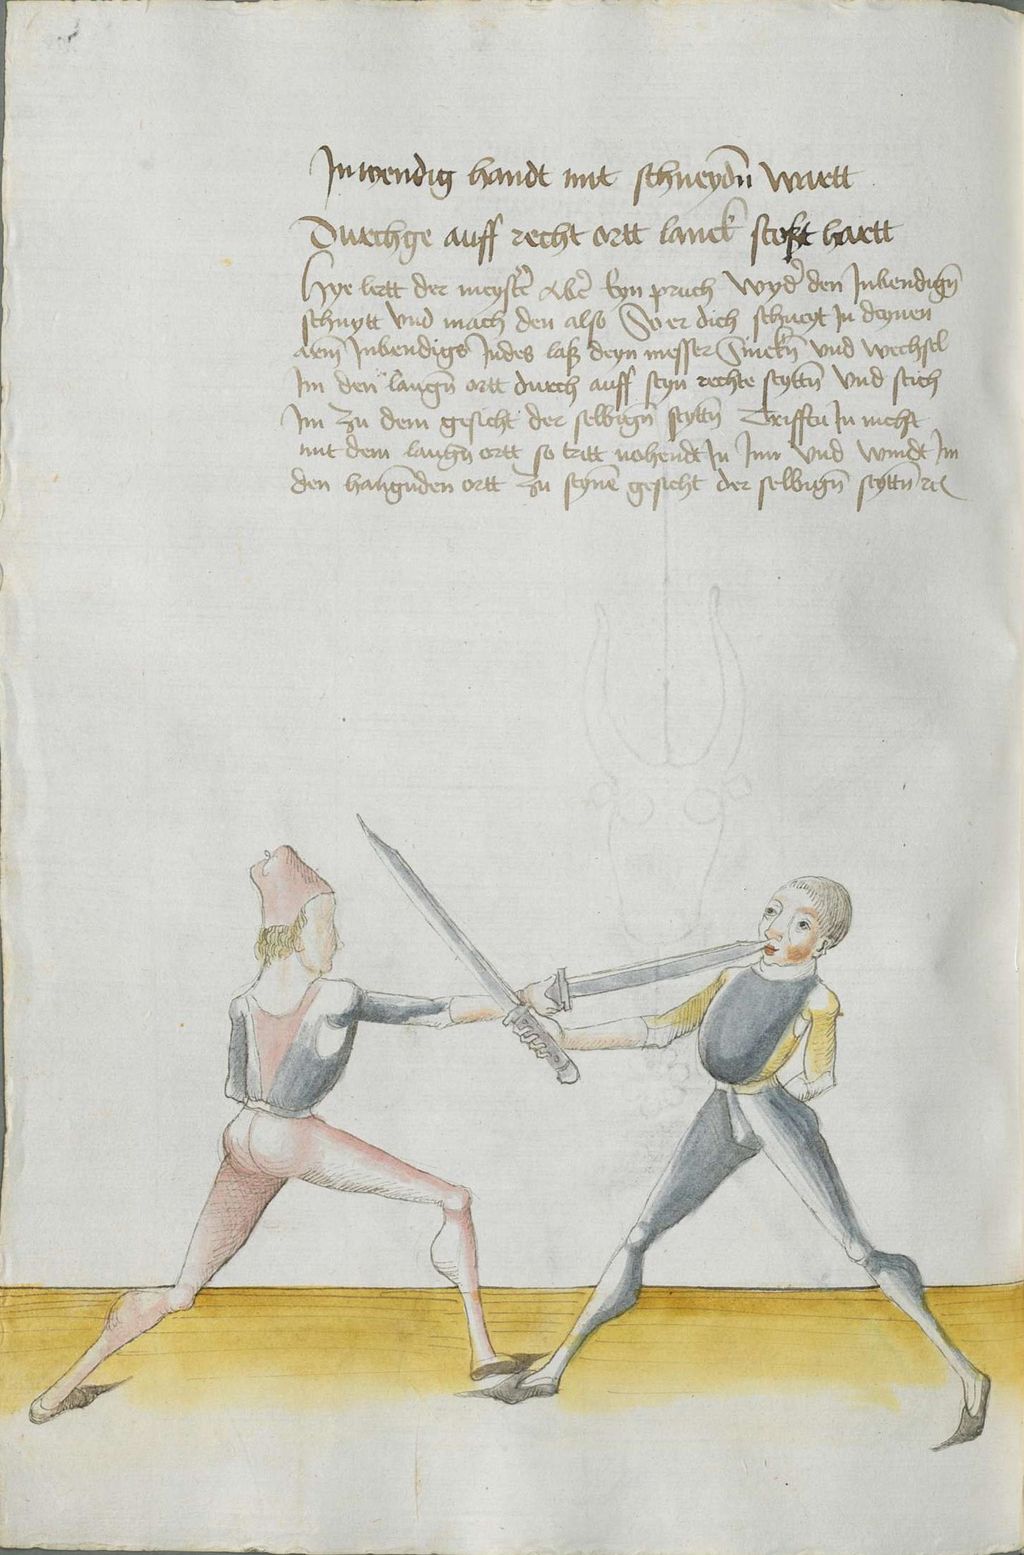 Inwendig handt mit schneydn̄ wartt
Durchge auff recht ortt lanck stost hartt
Hye lertt der meystͤr abͤr Eyn pruch wydͤ den Inbendign̄
schnytt vnd mach den also So er dich schneyt In deynen
arm̄ Inbendigs Indes laß deyn messer Sinckn̄ vnd wechsel
Im den langn̄ ortt durch auff seyn rechte seyttn̄ vnd stich
Im zu dem gesicht der selbign̄ seyttn̄ Triffttu In nicht
mit dem langn̄ ortt so tritt nohendt In Inn vnd windt Im
den hangn̄den ortt zu seynē gesicht der selbign̄ seyttn̄ rc